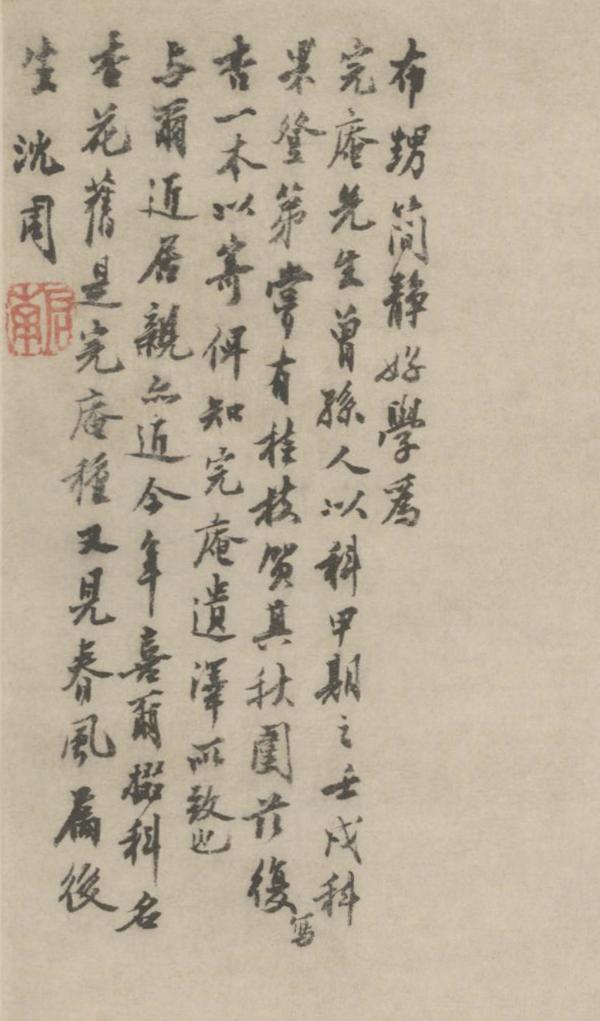 布甥簡靜好學為
完庵先生曾孫人以科甲期之壬戌科
果登第嘗有桂枝賀其秋闈茲復寫
杏一本以寄俾知完庵遺澤所致也
与爾近居親亦近今年喜爾掇科名
杏花舊是完庵種又見春風屬後
生沈周
啟南